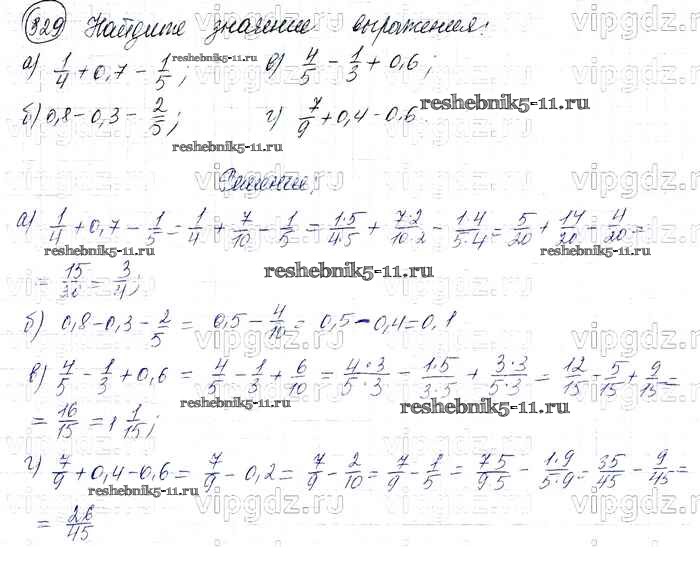 829 Найдите значение выражения:
а) 1/4 + 0,7 - 1/5; в) 4/5 - 1/3 + 0,6;
б) 0,8 - 0,3 - 2/5; г) 7/9 + 0,4 - 0,6.
Решение:
а) 1/4 + 0,7 - 1/5 = 1/4 + 7/10 - 1/5 = 1·5/4·5 + 7·2/10·2 - 1·4/5·4 = 5/20 + 14/20 - 4/20 =
= 15/20 = 3/4;
б) 0,8 - 0,3 - 2/5 = 0,5 - 4/10 = 0,5 - 0,4 = 0,1
в) 4/5 - 1/3 + 0,6 = 4/5 - 1/3 + 6/10 = 4·3/5·3 - 1·5/3·5 + 3·3/5·3 = 12/15 - 5/15 + 9/15 =
= 16/15 = 1 1/15;
г) 7/9 + 0,4 - 0,6 = 7/9 - 0,2 = 7/9 - 2/10 = 7/9 - 1/5 = 7·5/9·5 - 1·9/5·9 = 35/45 - 9/45 =
= 26/45
vipgdz.ru
reshebnik5-11.ru